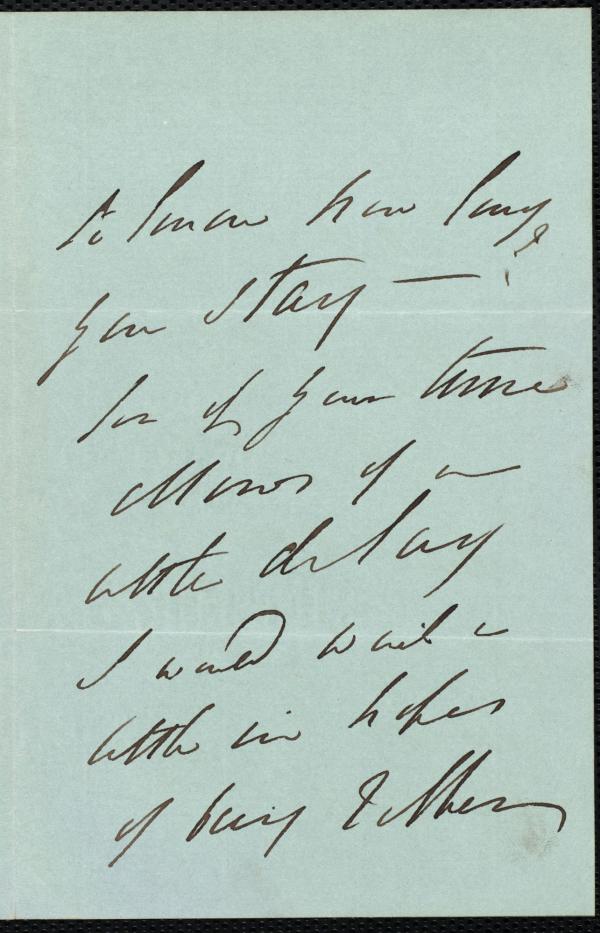 to know how long
you stay —
for if your time
allows of a
little delay
I would wait a
little in hopes
of being